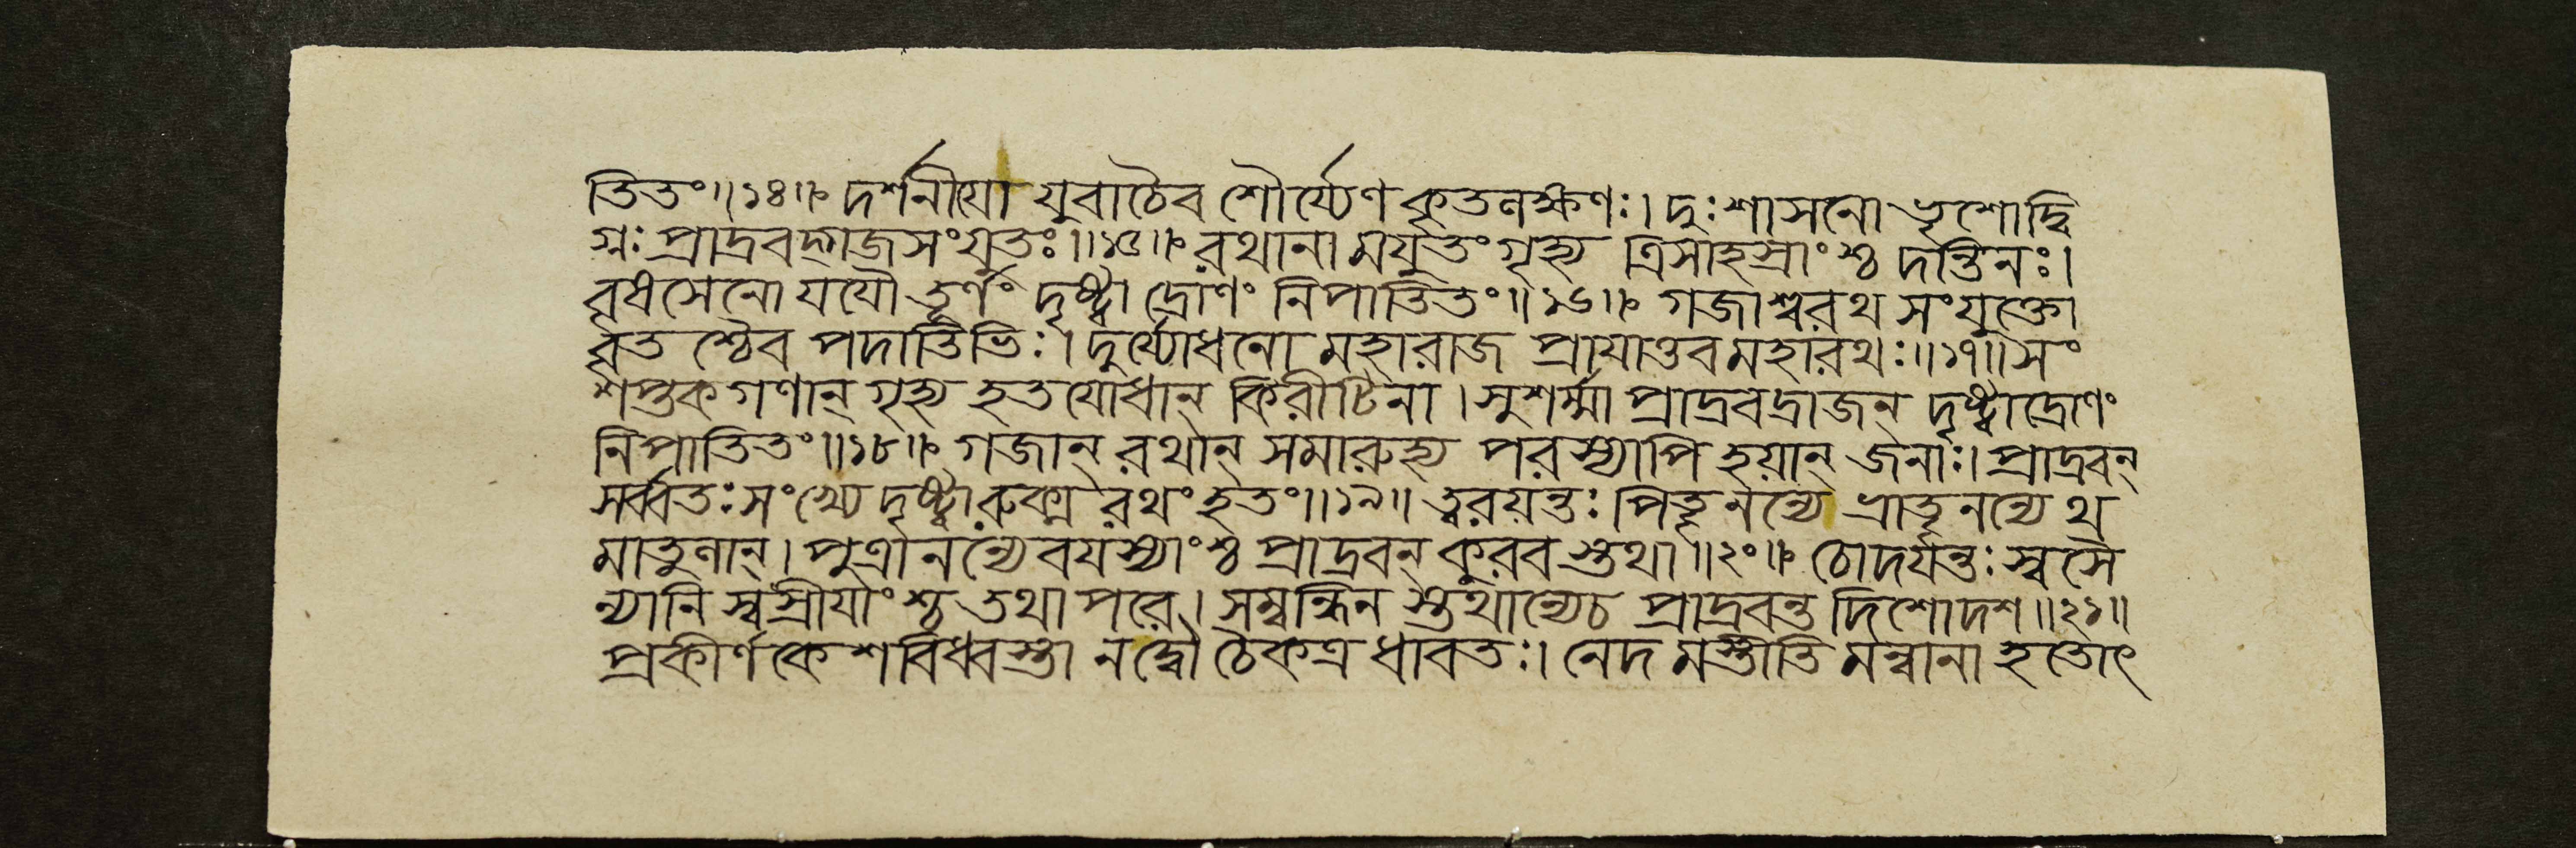 তিতং॥১৪॥ দর্শনীয়ো যুবাচৈব শৌর্য্যেণ কৃতলক্ষণঃ। দুঃশাসনো ভৃশোদ্বি
গ্নঃ প্রাদ্রবদ্গজসংযুতঃ॥১৫॥ রথানামযুতং গৃহ্য ত্রিসাহস্রাংশ্চ দন্তিনঃ।
বৃষসেনো যযৌ তূর্ণং দৃষ্ট্বা দ্রোণং নিপাতিতং॥১৬॥ গজাশ্বরথ সংযুক্তো
বৃত শ্চৈব পদাতিভিঃ। দুর্য্যোধনো মহারাজ প্রাযাত্তব মহারথঃ॥১৭॥ সং
শপ্তক গণান্ গৃহ্য হতযোধান্ কিরীটিনা। সুশর্ম্মা প্রাদ্রবদ্রাজন্ দৃষ্ট্বাদ্রোণং
নিপাতিতং॥১৮॥ গজান্ রথান্ সমারুহ্য পরস্যাপি হয়ান্ জনাঃ। প্রাদ্রবন্
সর্ব্বতঃ সংখ্যে দৃষ্ট্বারুক্ম রথং হতং॥১৯॥ ত্বরয়ন্তঃ পিতৄনন্যে ভ্রাতৄনন্যেথ
মাতুলান্। পুত্রানন্যেবযস্যাংশ্চ প্রাদ্রবন্ কুরব স্তথা॥২০॥ চোদযন্তঃ স্বসৈ
ন্যানি স্বস্রীযাংশ্চ তথাপরে। সম্বন্ধিন স্তথান্যেচ প্রাদ্রবন্ত দিশোদশ॥২১॥
প্রকীর্ণকেশবিধ্বস্তা নদ্বৌচৈকত্র ধাবতঃ। নেদমস্তীতি মন্বানা হতোৎ